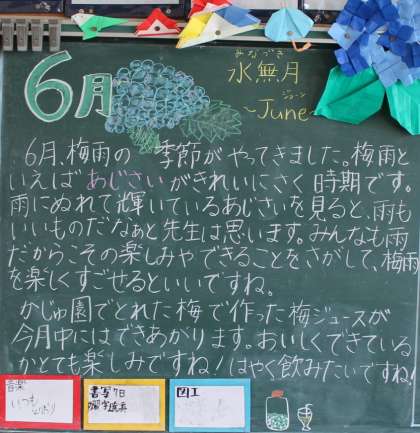 6月
みなづき
水無月
ジューン
~June~
6月、梅雨の季節がやってきました。梅雨と
いえばあじさいがきれいにさく時期です。
雨にぬれて輝いているあじさいを見ると、雨も
いいものだなぁと先生は思います。みんなも雨
だからこその楽しみやできることをさがして、梅雨
を楽しくすごせるといいですね。
かじゅ園でとれた梅で作った梅ジュースが
今月中にはできあがります。おいしくできている
かとても楽しみですね!はやく飲みたいですね!
音楽
いつも
書写7日
図工